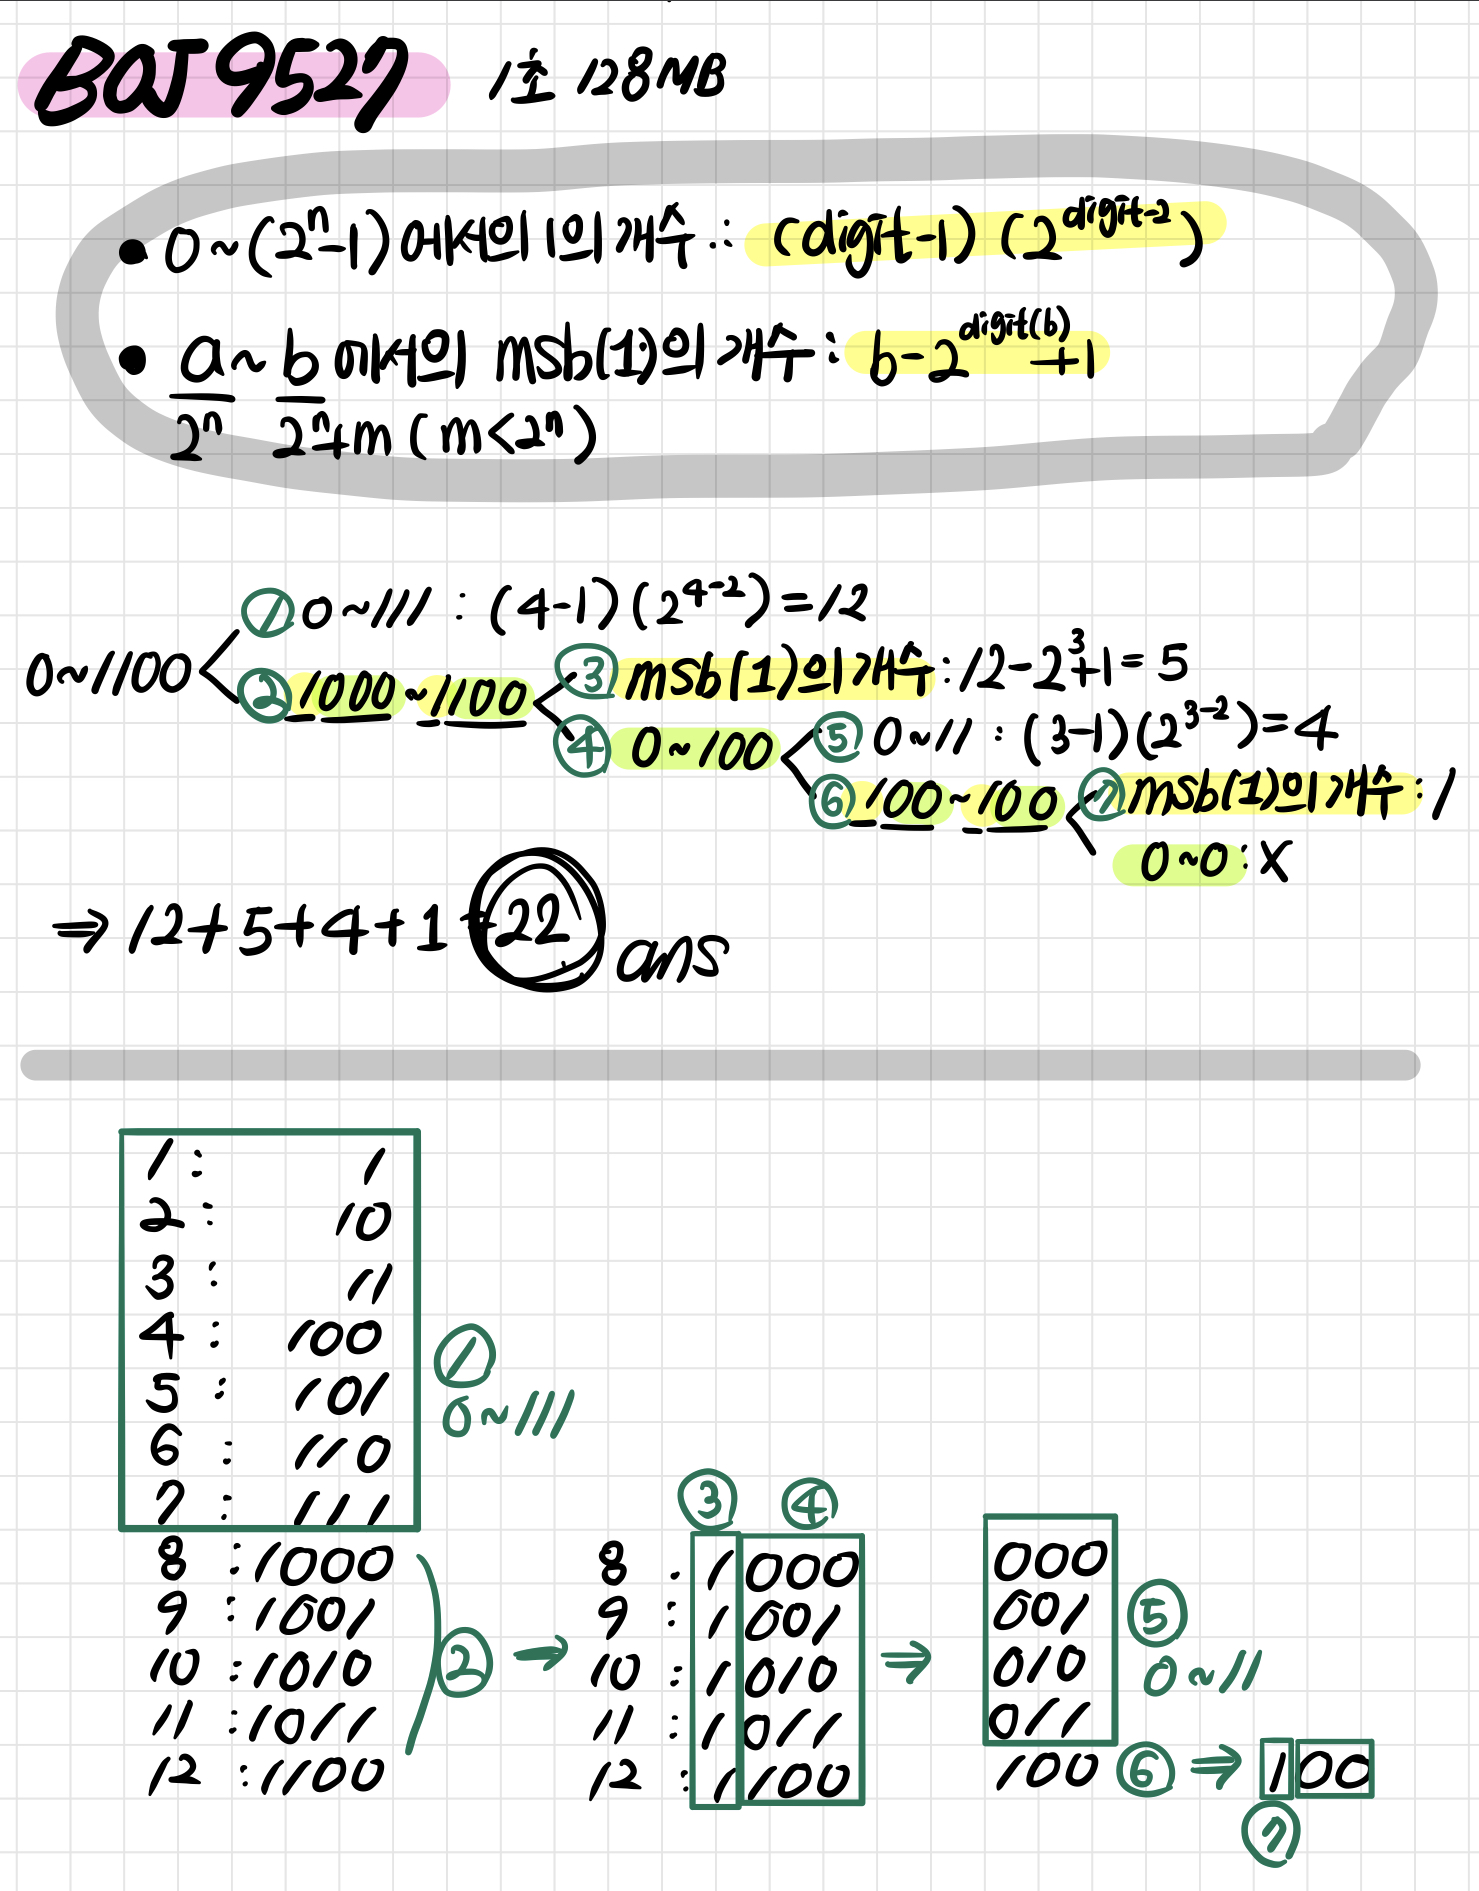 BOJ 9527 1초 128MB
• 0~(2ⁿ-1)에서의 1의 개수 : (digit-1)(2^{digit-2})
• a~b에서의 msb(1)의 개수 : b-2^{digit(b)}+1
2ⁿ 2ⁿ+m (m<2ⁿ)
① 0~111 : (4-1)(2^{4-2})=12
0~1100
② 1000~1100
③ msb(1)의 개수 : 12-2³+1=5
④ 0~100
⑤ 0~11 : (3-1)(2^{3-2})=4
⑥ 100~100
⑦ msb(1)의 개수 : 1
0~0 : X
⇒ 12+5+4+1=22 ans
1 : 1
2 : 10
3 : 11
4 : 100
5 : 101
6 : 110
7 : 111
① 0~111
8 : 1000
9 : 1001
10 : 1010
11 : 1011
12 : 1100
② →
③ ④
8 : 1 000
9 : 1 001
10 : 1 010
11 : 1 011
12 : 1 100
⇒
000
001
010
011
⑤ 0~11
100 ⑥ ⇒ 1 00
⑦